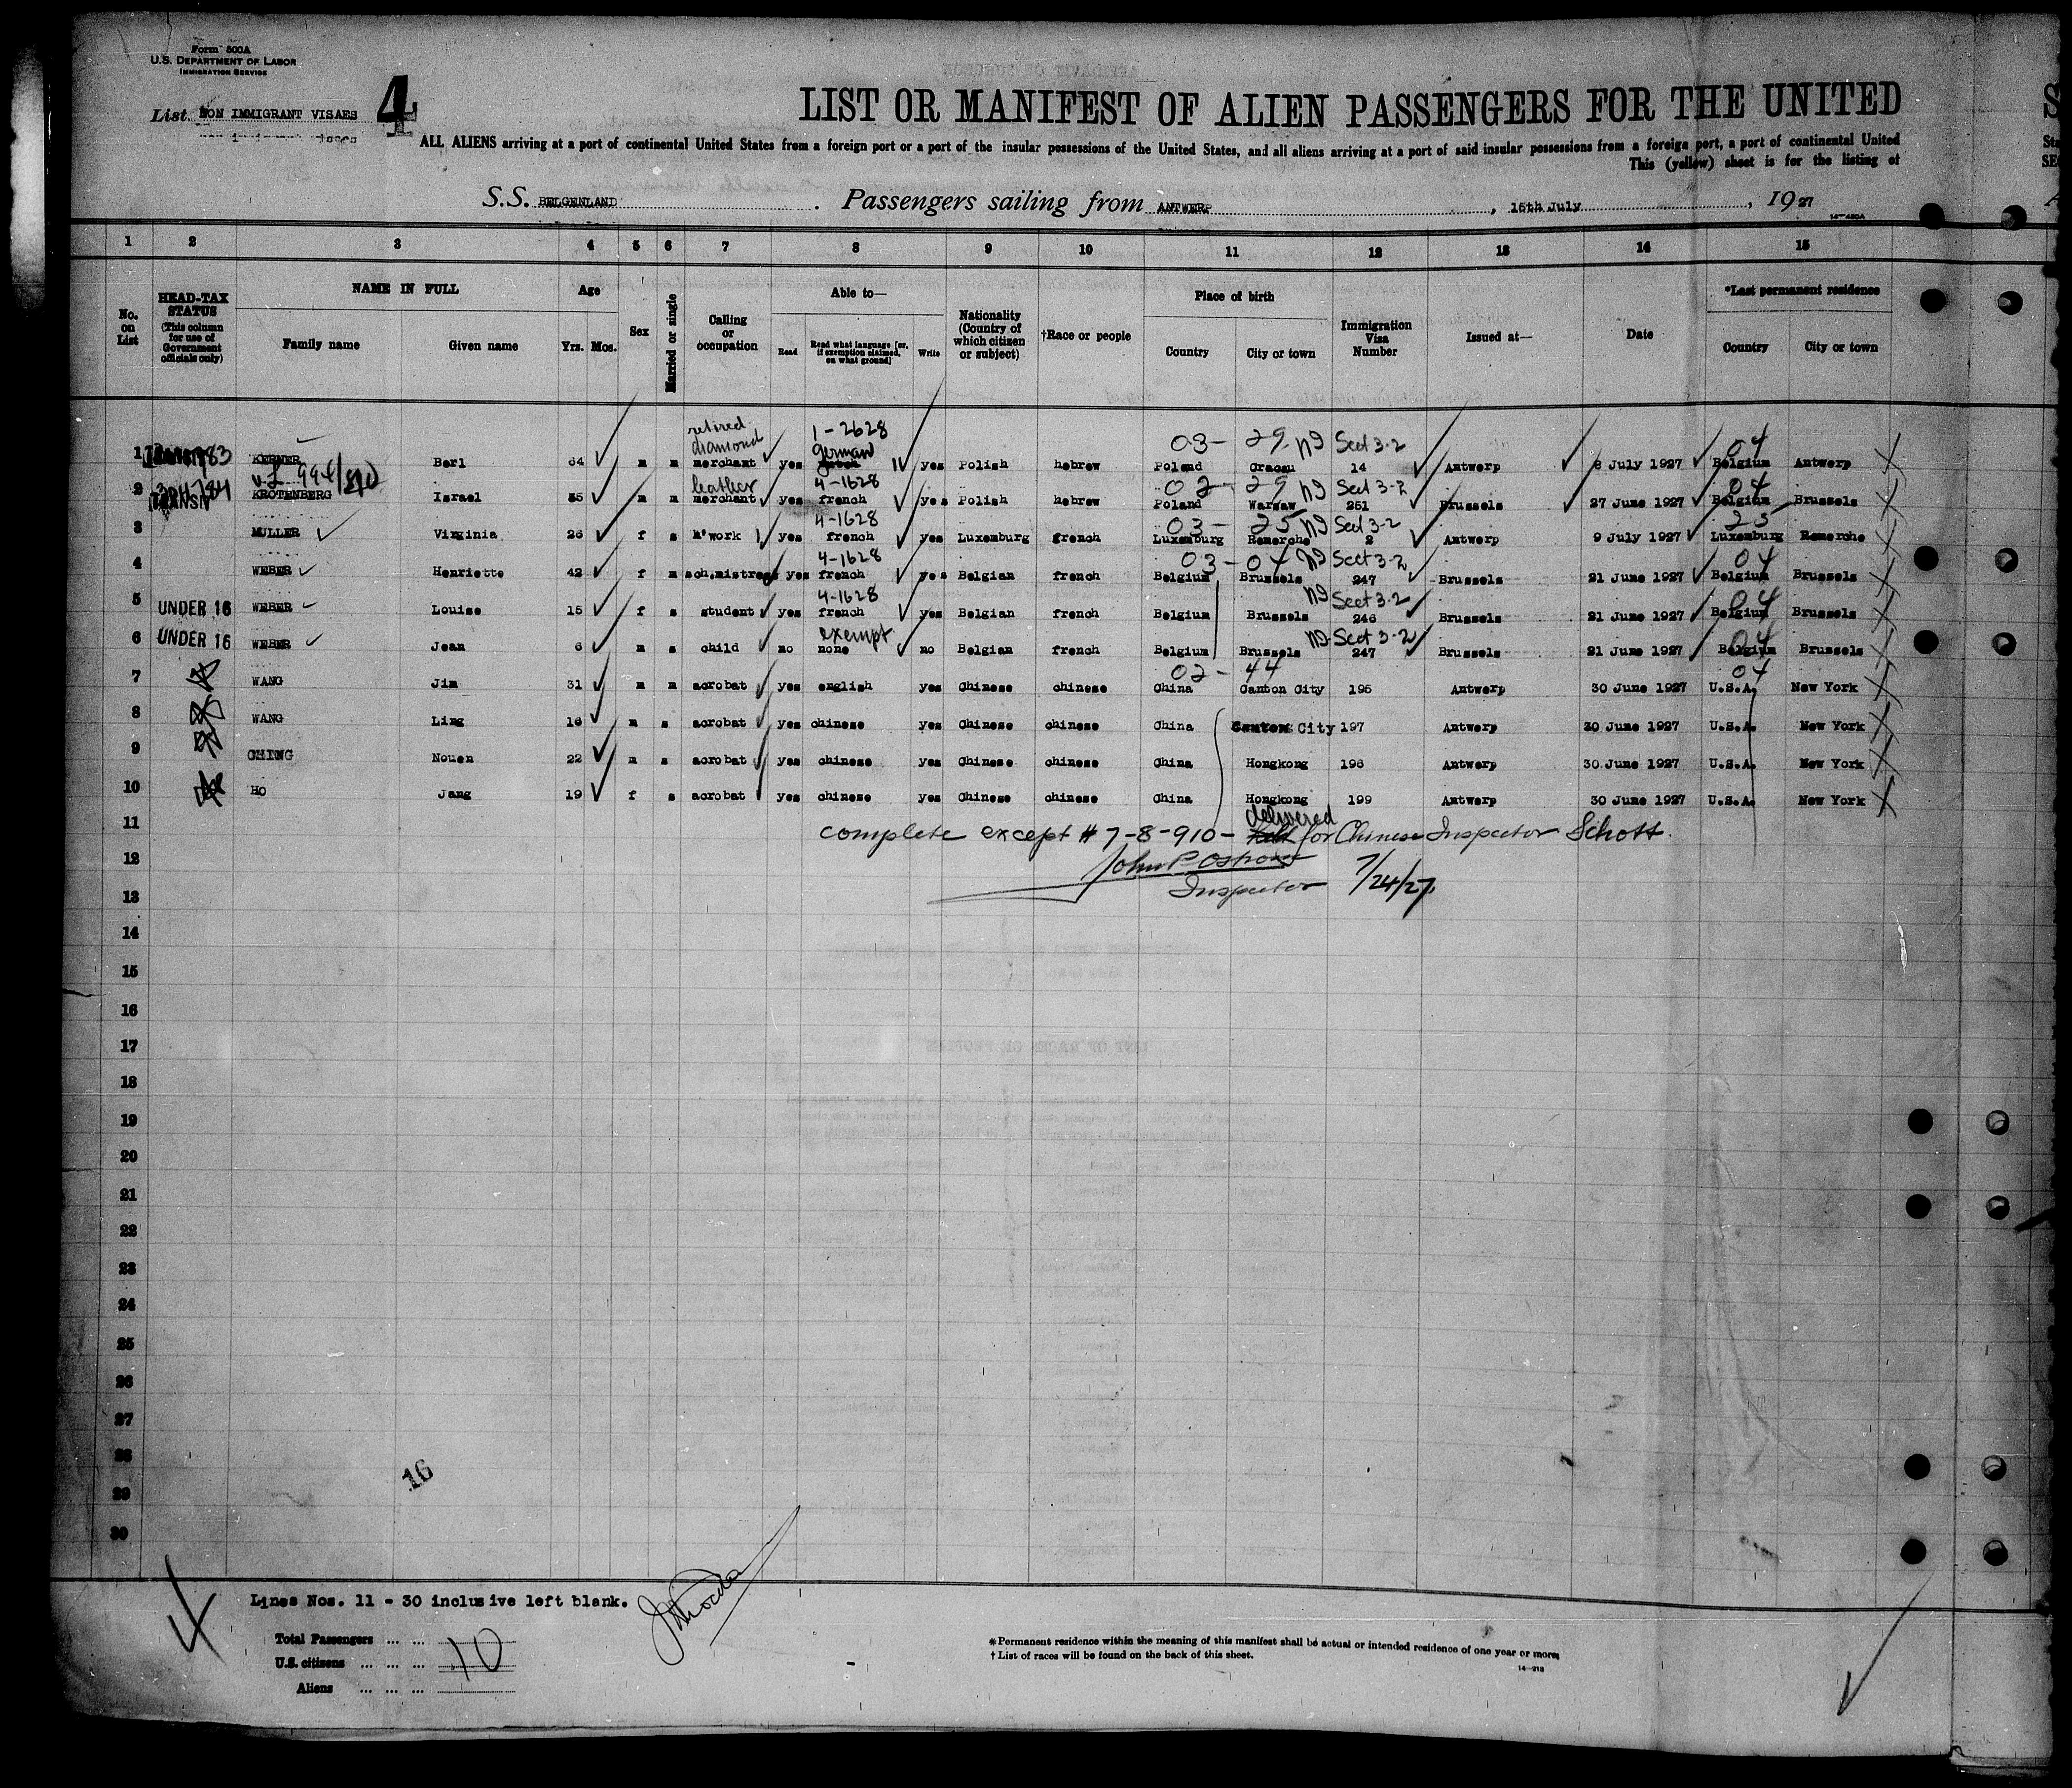 Form 500A
U.S. DEPARTMENT OF LABOR
IMMIGRATION SERVICE
List NON IMMIGRANT VISAES
4
LIST OR MANIFEST OF ALIEN PASSENGERS FOR THE UNITED
ALL ALIENS arriving at a port of continental United States from a foreign port or a port of the insular possessions of the United States, and all aliens arriving at a port of said insular possessions from a foreign port, a port of continental United
This (yellow) sheet is for the listing of
S.S. BELGENLAND . Passengers sailing from ANTWERP , 15th July , 1927
1 2 3 4 5 6 7 8 9 10 11 12 13 14 15
No. on List
HEAD-TAX STATUS (This column for use of Government officials only)
NAME IN FULL Family name Given name
Age Yrs. Mos.
Sex
Married or single
Calling or occupation
Able to— Read Read what language [or, if exemption claimed, on what ground] Write
Nationality (Country of which citizen or subject)
†Race or people
Place of birth Country City or town
Immigration Visa Number
Issued at—
Date
*Last permanent residence Country City or town
retired diamond 1-2628 german 03- 29 Sect 3-2 04
1 KERNER Berl 64 m m merchant yes yes Polish hebrew Poland Cracau 14 Antwerp 8 July 1927 Belgium Antwerp
leather 4-1628 02- 29 Sect 3-2 04
2 TRANSIT KROTENBERG Israel 35 m m merchant yes french yes Polish hebrew Poland Warsaw 251 Brussels 27 June 1927 Belgium Brussels
4-1628 03- 25 Sect 3-2 25
3 MULLER Virginia 26 f s H'work yes french yes Luxemburg french Luxemburg Remerche 2 Antwerp 9 July 1927 Luxemburg Remerche
4-1628 03-04 Sect 3-2 04
4 WEBER Henriette 42 f m sch.mistress yes french yes Belgian french Belgium Brussels 247 Brussels 21 June 1927 Belgium Brussels
4-1628 Sect 3-2 04
5 UNDER 16 WEBER Louise 15 f s student yes french yes Belgian french Belgium Brussels 246 Brussels 21 June 1927 Belgium Brussels
exempt Sect 3-2 04
6 UNDER 16 WEBER Jean 6 m s child no none no Belgian french Belgium Brussels 247 Brussels 21 June 1927 Belgium Brussels
02-44 04
7 WANG Jim 31 m m acrobat yes english yes Chinese chinese China Canton City 195 Antwerp 30 June 1927 U.S.A. New York
8 WANG Ling 16 m s acrobat yes chinese yes Chinese chinese China Canton City 197 Antwerp 30 June 1927 U.S.A. New York
9 CHING Nouen 22 m s acrobat yes chinese yes Chinese chinese China Hongkong 198 Antwerp 30 June 1927 U.S.A. New York
10 HO Jang 19 f s acrobat yes chinese yes Chinese chinese China Hongkong 199 Antwerp 30 June 1927 U.S.A. New York
11 complete except # 7-8-910- delivered for Chinese Inspector Schott.
12 John P
13 Inspector 7/24/27
14
15
16
17
18
19
20
21
22
23
24
25
26
27
28
16
29
30
4
Lines Nos. 11 - 30 inclusive left blank.
Total Passengers ... ...
U.S. citizens ... ... ... 10
Aliens ... ... ...
*Permanent residence within the meaning of this manifest shall be actual or intended residence of one year or more.
†List of races will be found on the back of this sheet.
14—218